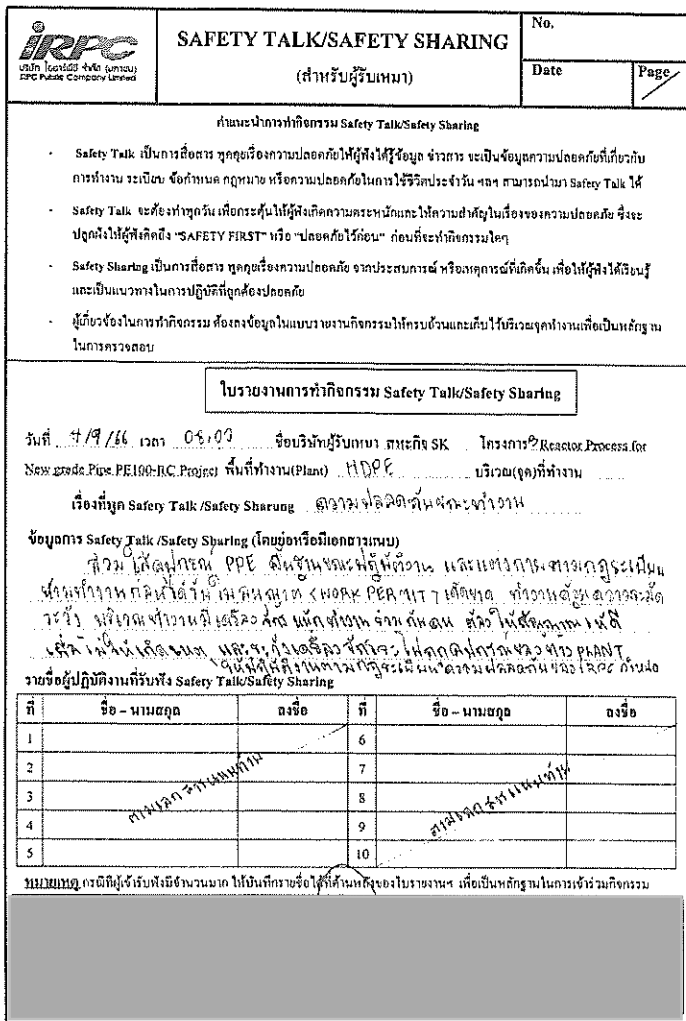 IRPC
บริษัท ไออาร์พีซี จำกัด (มหาชน)
IRPC Public Company Limited
SAFETY TALK/SAFETY SHARING
(สำหรับผู้รับเหมา)
No.
Date
Page
คำแนะนำการทำกิจกรรม Safety Talk/Safety Sharing
- Safety Talk เป็นการสื่อสาร พูดคุยเรื่องความปลอดภัยให้ผู้ฟังได้รู้ข้อมูล ข่าวสาร จะเป็นข้อมูลความปลอดภัยที่เกี่ยวกับ
การทำงาน ระเบียบ ข้อกำหนด กฎหมาย หรือความปลอดภัยในการใช้ชีวิตประจำวัน ฯลฯ สามารถนำมา Safety Talk ได้
- Safety Talk จะต้องทำทุกวัน เพื่อกระตุ้นให้ผู้ฟังเกิดความตระหนักและให้ความสำคัญในเรื่องของความปลอดภัย ซึ่งจะ
ปลูกฝังให้ผู้ฟังคิดถึง "SAFETY FIRST" หรือ "ปลอดภัยไว้ก่อน" ก่อนที่จะทำกิจกรรมใดๆ
- Safety Sharing เป็นการสื่อสาร พูดคุยเรื่องความปลอดภัย จากประสบการณ์ หรือเหตุการณ์ที่เกิดขึ้น เพื่อให้ผู้ฟังได้เรียนรู้
และเป็นแนวทางในการปฏิบัติที่ถูกต้องปลอดภัย
- ผู้เกี่ยวข้องในการทำกิจกรรม ต้องลงข้อมูลในแบบรายงานกิจกรรมให้ครบถ้วนและเก็บไว้บริเวณจุดทำงานเพื่อเป็นหลักฐาน
ในการตรวจสอบ
ใบรายงานการทำกิจกรรม Safety Talk/Safety Sharing
วันที่ 4/9/66 เวลา 08.00 ชื่อบริษัทผู้รับเหมา สหะกิจ SK โครงการ Reactor Process for
New grade Pipe PE100-RC Project พื้นที่ทำงาน(Plant) HDPE บริเวณ(จุด)ที่ทำงาน
เรื่องที่พูด Safety Talk /Safety Sharung ความปลอดภัยขณะทำงาน
ข้อมูลการ Safety Talk /Safety Sharing (โดยย่อหรือมีเอกสารแนบ)
สวมใส่อุปกรณ์ PPE พื้นฐานขณะปฏิบัติงาน และแต่งกายตามกฎระเบียบ
ห้ามทำงานก่อนได้รับใบอนุญาต < WORK PERMIT > เด็ดขาด ทำงานด้วยความระมัด
ระวัง บริเวณทำงานมีเครื่องจักรหนักทำงานร่วมกับคน ต้องให้สัญญาณให้ดี
เพื่อไม่ให้เกิดชนต และระวังเครื่องจักรจะไปถูกอุปกรณ์ของทาง PLANT
ให้ปฏิบัติงานตามกฎระเบียบความปลอดภัยของ IRPC กำหนด
รายชื่อผู้ปฏิบัติงานที่รับฟัง Safety Talk/Safety Sharing
ที่ ชื่อ – นามสกุล ลงชื่อ ที่ ชื่อ – นามสกุล ลงชื่อ
1 6
2 7
3 ตามเอกสารแนบท้าย 8 ตามเอกสารแนบท้าย
4 9
5 10
หมายเหตุ กรณีที่ผู้เข้ารับฟังมีจำนวนมาก ให้บันทึกรายชื่อได้ที่ด้านหลังของใบรายงานฯ เพื่อเป็นหลักฐานในการเข้าร่วมกิจกรรม